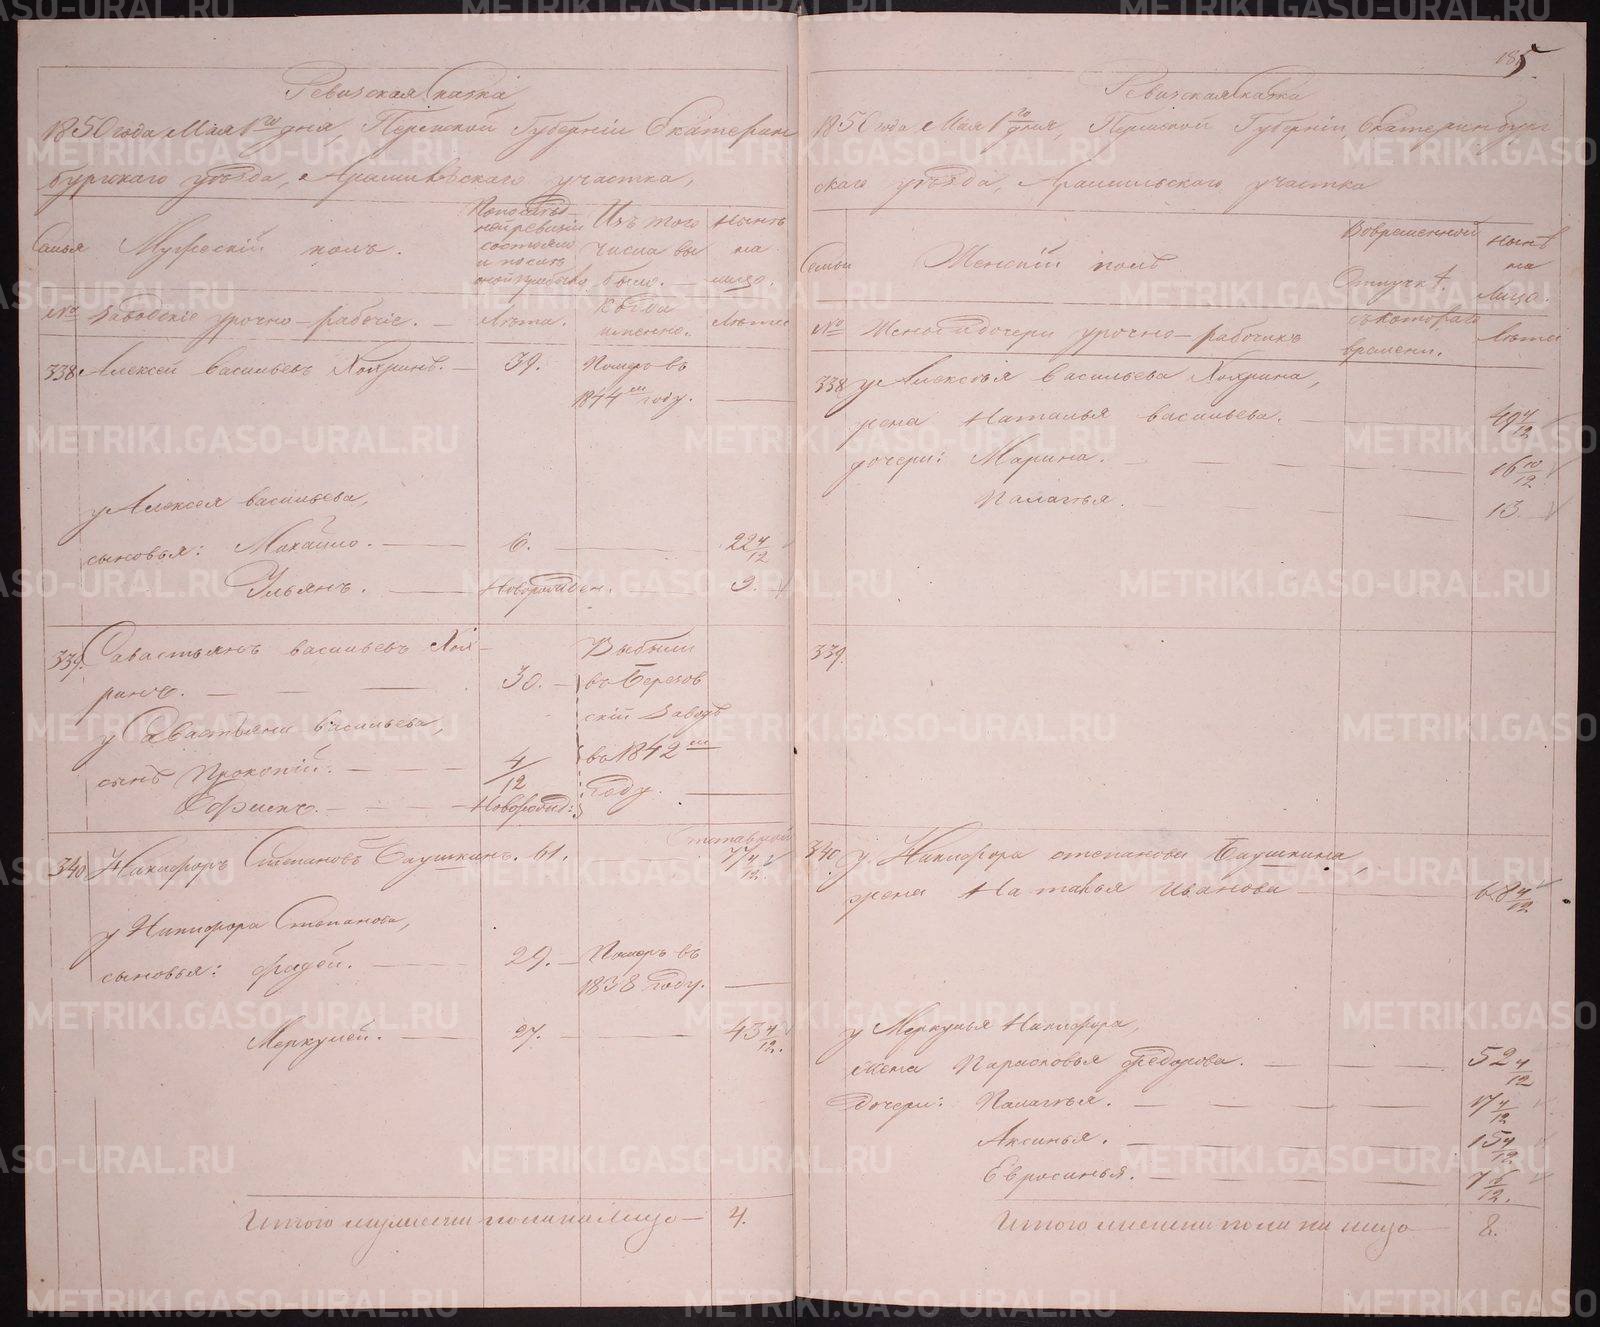 185.
Ревизская сказка
1850 года Мая 1го дня, Пермской Губернiи Екатерин
бургскаго уѣзда, Арамильскаго участка,
Семья
Мужескiй полъ.
По послѣд
ней ревизiи
состояло
и послѣ
оной прибыло
Изъ того
числа вы
было.
Нынѣ
на
лицо.
№
Заводскiе урочно-рабочiе.
Лѣта.
Когда
именно.
Лѣта
338 Алексей Васильевъ Хохринъ. 39. Померъ въ
1844м году.
у Алексея Васильева,
сыновья: Михайло. 6. 22 4/12
Ульянъ. Новорожден. 9.
339. Савастьянъ Васильевъ Хох-
ринъ. 30.
Выбыли
въ Березов
скiй Заводъ
въ 1842м
году.
у Савастьяна Васильева,
сынъ Прокопiй. 4/12
Ефимъ. Новорожд:
340 Никифоръ Степановъ Баушкинъ. 61. 77 4/12
у Никифора Степанова,
сыновья: Фадей. 29. Померъ въ
1838 году.
Меркулей. 27. 43 4/12.
Итого мужеска пола на лицо 4.
Ревизская сказка
1850 года Мая 1го дня, Пермской Губернiи, Екатеринбург
скаго уѣзда, Арамильскаго участка
Семьи
Женскiй полъ
Во временной
Отлучкѣ.
Нынѣ
на
Лицо.
№
Жены и дочери урочно-рабочихъ
съ котораго
времени.
Лѣта
338 у Алексѣя Васильева Хохрина,
жена Наталья Васильева. 49 4/12
дочери: Марина. 16 10/12
Палагѣя. 13.
339.
340. у Никифора Степанова Баушкина,
жена Наталья Иванова 68 4/12
у Меркулья Никифора,
жена Парасковья Федорова. 52 4/12
Дочери: Палагѣя. 17 4/12
Аксинья. 15 4/12
Евросинья. 7 6/12.
Итого женска пола на лицо 8.
METRIKI.GASO-URAL.RU